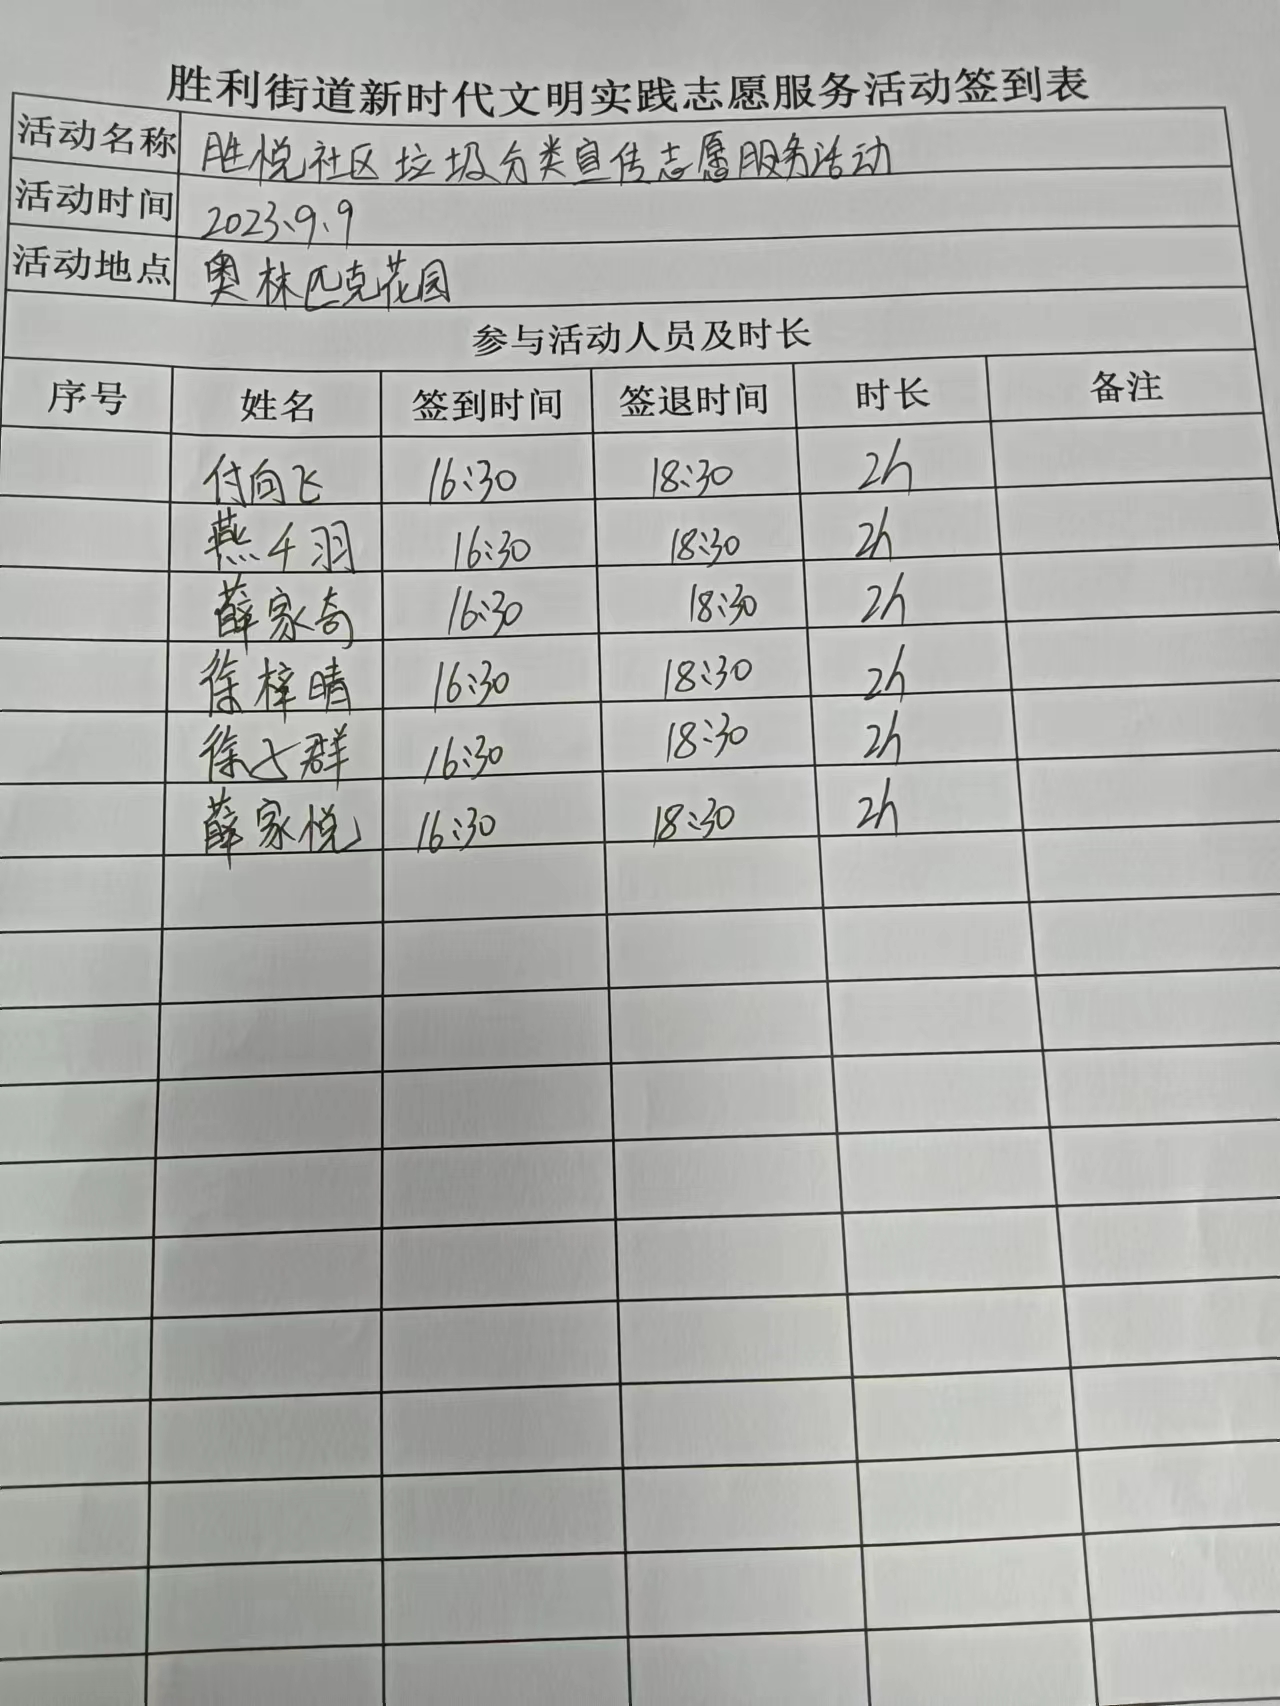 胜利街道新时代文明实践志愿服务活动签到表
活动名称 胜悦社区垃圾分类宣传志愿服务活动
活动时间 2023、9、9
活动地点 奥林匹克花园
参与活动人员及时长
序号 姓名 签到时间 签退时间 时长 备注
付向飞 16:30 18:30 2h
燕千羽 16:30 18:30 2h
薛家奇 16:30 18:30 2h
徐梓晴 16:30 18:30 2h
徐 群 16:30 18:30 2h
薛家悦 16:30 18:30 2h